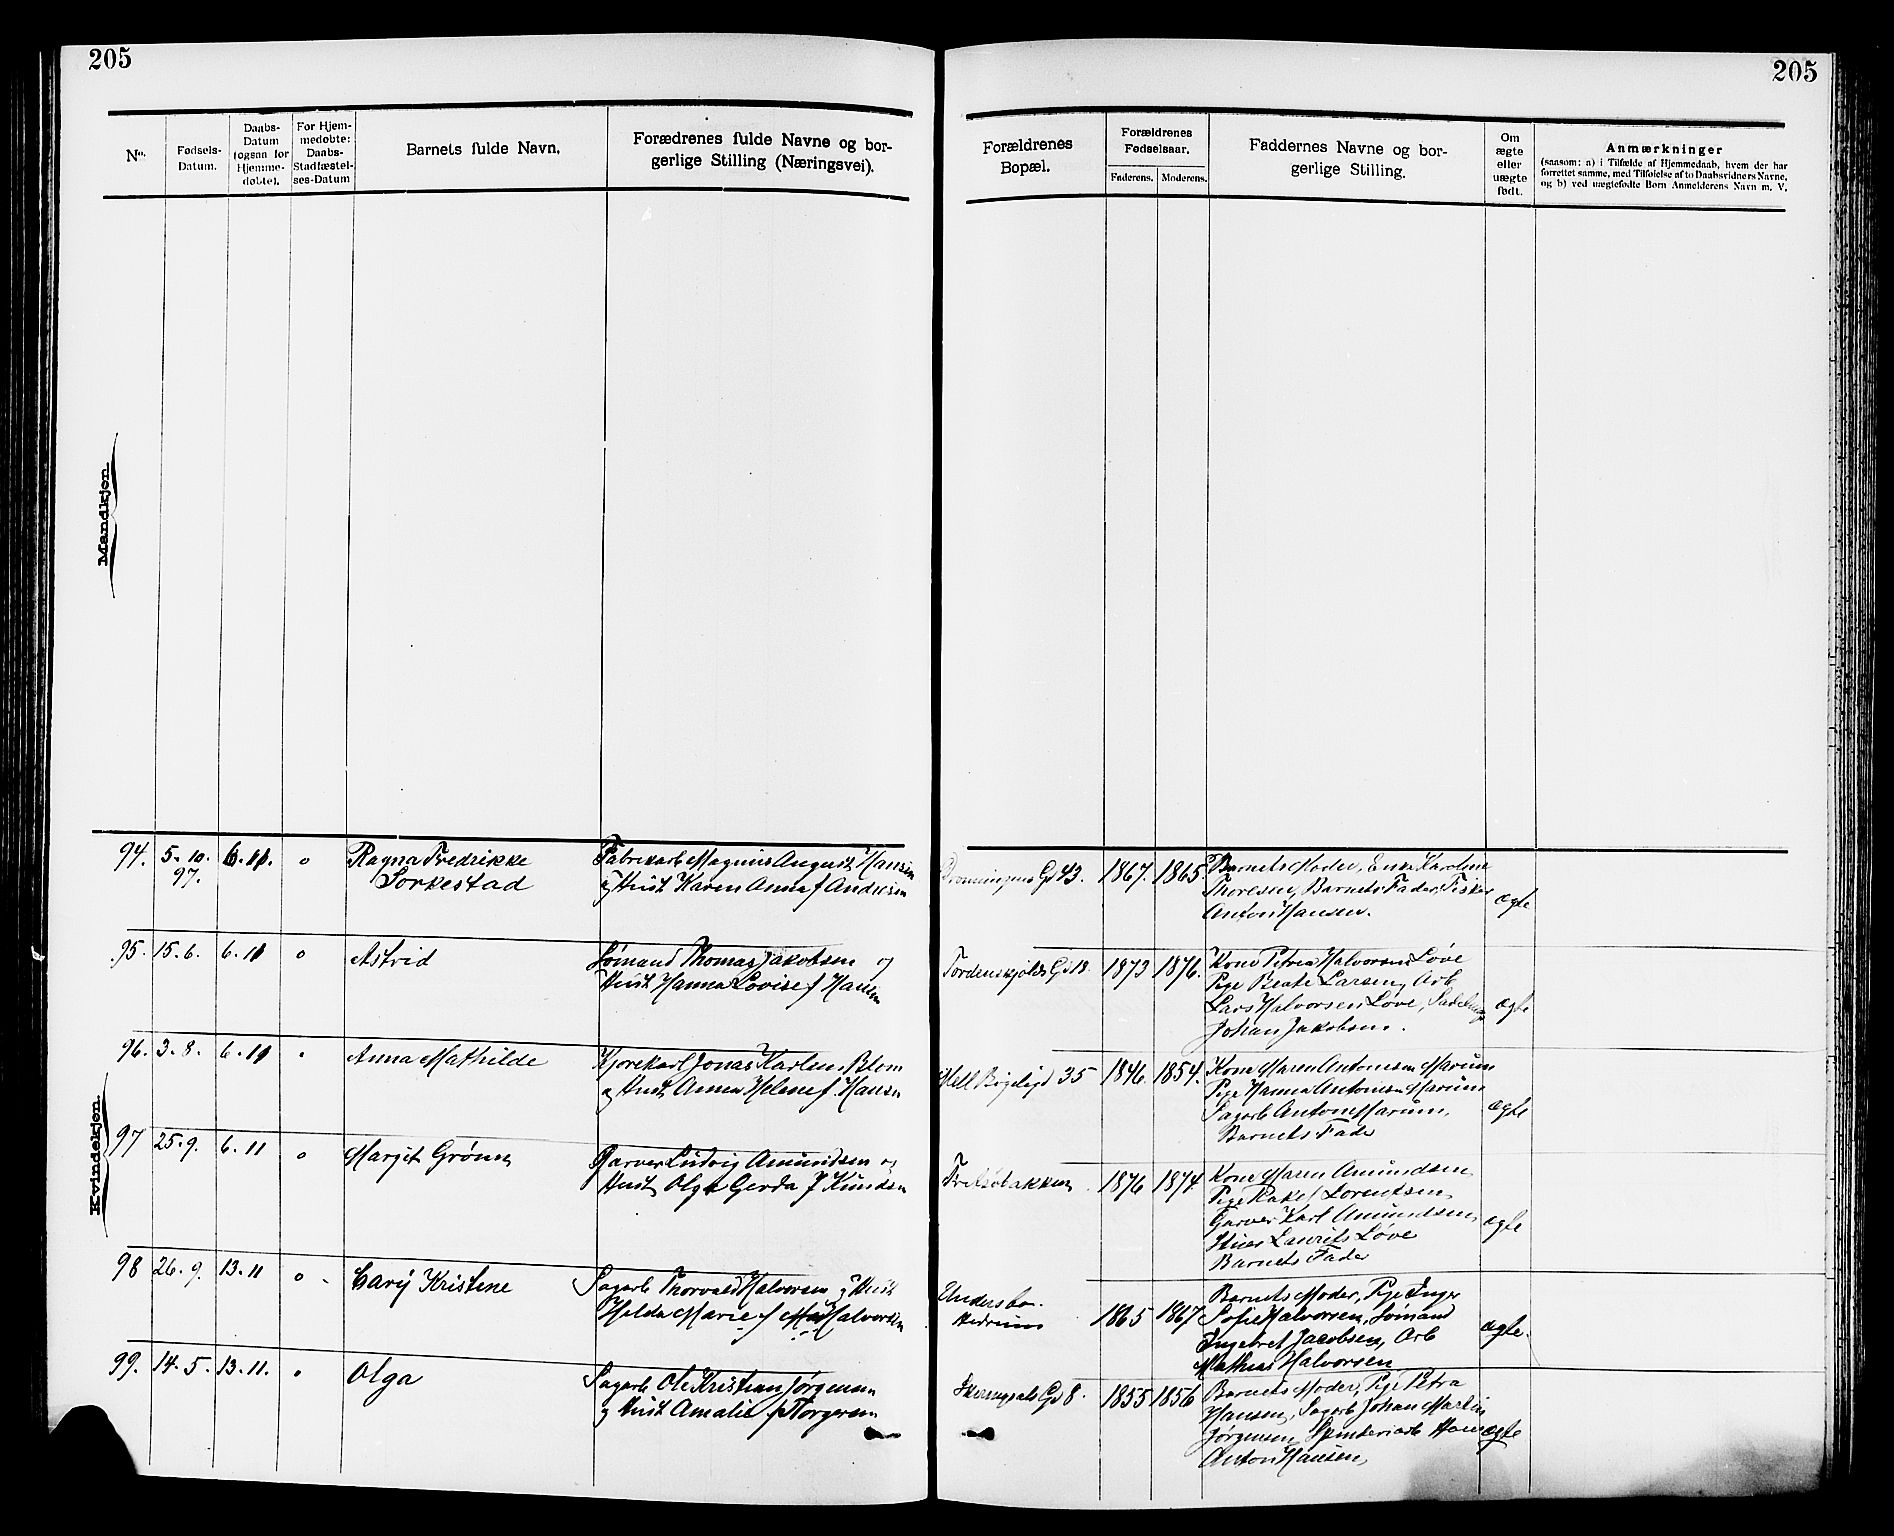 205
205
No.
Fødsels-
Datum.
Daabs-
Datum
(ogsaa for
Hjemme-
døbte).
For Hjem-
medøbte:
Daabs-
Stadfæstel-
ses-Datum
Barnets fulde Navn.
Forædrenes fulde Navne og bor-
gerlige Stilling (Næringsvei).
Forældrenes
Bopæl.
Forældrenes
Fødselsaar.
Faderens.
Moderens.
Faddernes Navne og bor-
gerlige Stilling.
Om
ægte
eller
uægte
født.
Anmærkninger
(saasom: a) i Tilfælde af Hjemmedaab, hvem der har
forrettet samme, med Tilføielse af to Daabsvidners Navne,
og b) ved uægtefødte Børn Anmelderens Navn m. V.
Mandkjøn
Kvindekjøn
94.
5. 10.
97.
6. 11.
o
Ragna Fredrikke
Sorkestad
Fabrikarb Magnus August Hansen
og Hust Karen Anna f Andresen
Dronningens Gd 43.
1867.
1865.
Barnets Moder, Enke Karoline
Thoresen, Barnets Fader, Fisker
Anton Hansen.
ægte
95.
15. 6.
6. 11
o
Astrid
Sømand Thomas Jakobsen og
Hust Hanna Lovise f Hansen
Tordenskjolds Gd 18.
1873
1876.
Kone Petrea Halvorsen Løve
Pige Beate Larsen, Arb
Lars Halvorsen Løve,
Johan Jakobsen.
ægte
96.
3. 8.
6. 11
Anna Mathilde
Kjørekarl Jonas Karlsen Blom
og Hust Anna Helene f. Hansen
35
1846.
1854.
Kone Maren Antonsen Marum
Pige Hanna Antonsen Marum
Sagarb Anton Marum,
Barnets Fader
ægte
97
25. 9.
6. 11
o
Margit Grønn
Garver Ludvig Amundsen og
Hust Olga Gerda f Knudsen
1876
1874.
Kone Maren Amundsen,
Pige Rakel Lorentsen,
Garver Karl Amundsen,
Laurits Løve
Barnets Fader
ægte
98
26. 9.
13. 11
o
Cary Kristine
Sagarb Thorvald Halvorsen og Hust
Helda Marie f Halvorsen
Undersbo.
Hedrum
1865
1867
Barnets Moder, Pige Inger
Sofie Halvorsen, Sømand
Ingebret Jacobsen, Arb
Mathias Halvorsen
ægte.
99.
14. 5.
13. 11.
Olga
Sagarb Ole Kristian Jørgensen
og Hust Amalie f Torgersen
Gd 8.
1855
1856
Barnets Moder, Pige Petra
Hansen, Sagarb Johan Martin
Jørgensen, Spinderiarb Hans
Anton Hansen,
ægte